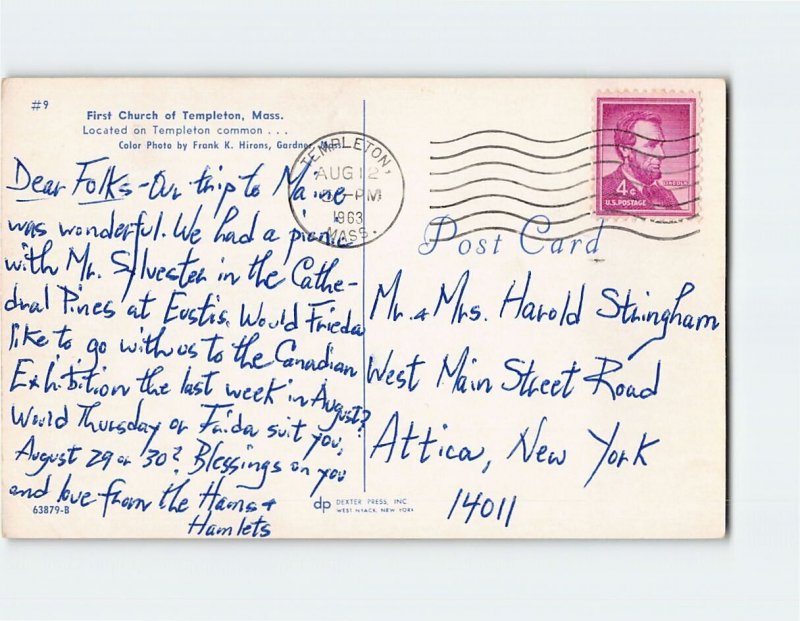 #9
First Church of Templeton, Mass.
Located on Templeton common . . .
Color Photo by Frank K. Hirons, Gardner, Mass.
Dear Folks - Our trip to Maine
was wonderful. We had a picnic
with Mr. Sylvester in the Cathe-
dral Pines at Eustis. Would Frieda
like to go with us to the Canadian
Exhibition the last week in August?
Would Thursday or Friday suit you,
August 29 or 30? Blessings on you
and love from the Hams +
Hamlets
63879-B
dp DEXTER PRESS, INC.
WEST NYACK, NEW YORK
TEMPLETON,
AUG 12
PM
1963
MASS.
4¢
LINCOLN
U.S. POSTAGE
Post Card
Mr. & Mrs. Harold Stringham
West Main Street Road
Attica, New York
14011